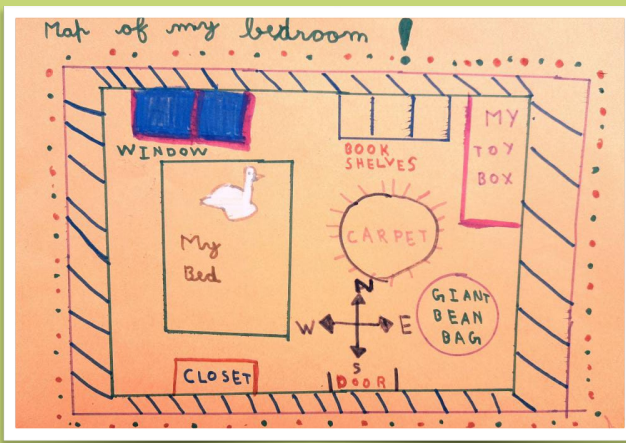 Map of my bedroom !
WINDOW
BOOK
SHELVES
MY
TOY
BOX
CARPET
My
Bed
N
W E
S
GIANT
BEAN
BAG
CLOSET
DOOR